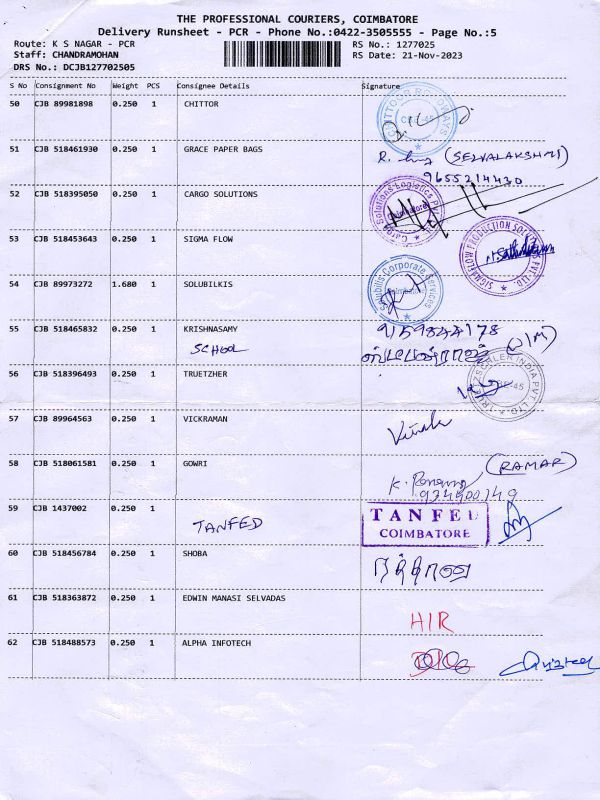 THE PROFESSIONAL COURIERS, COIMBATORE
Delivery Runsheet - PCR - Phone No.:0422-3505555 - Page No.:5
Route: K S NAGAR - PCR RS No.: 1277025
Staff: CHANDRAMOHAN RS Date: 21-Nov-2023
DRS No.: DCJB127702505
S No Consignment No Weight PCS Consignee Details Signature
50 CJB 89981898 0.250 1 CHITTOR
51 CJB 518461930 0.250 1 GRACE PAPER BAGS (SELVALAKSHMI)
9655214430
52 CJB 518395050 0.250 1 CARGO SOLUTIONS
Cargo Solutions Logistics Pvt.
Coimbatore
53 CJB 518453643 0.250 1 SIGMA FLOW
SIGMAFLOW PRODUCTION SOLUTIONS PVT. LTD.
54 CJB 89973272 1.680 1 SOLUBILKIS
Solubilis Corporate Services
Coimbatore
55 CJB 518465832 0.250 1 KRISHNASAMY 9159844178
SCHOOL
56 CJB 518396493 0.250 1 TRUETZHER
INDIA PVT. LTD.
57 CJB 89964563 0.250 1 VICKRAMAN
58 CJB 518061581 0.250 1 GOWRI (RAMAR)
59 CJB 1437002 0.250 1 TANFED
TANFED
COIMBATORE
60 CJB 518456784 0.250 1 SHOBA
61 CJB 518363872 0.250 1 EDWIN MANASI SELVADAS
HIR
62 CJB 518488573 0.250 1 ALPHA INFOTECH